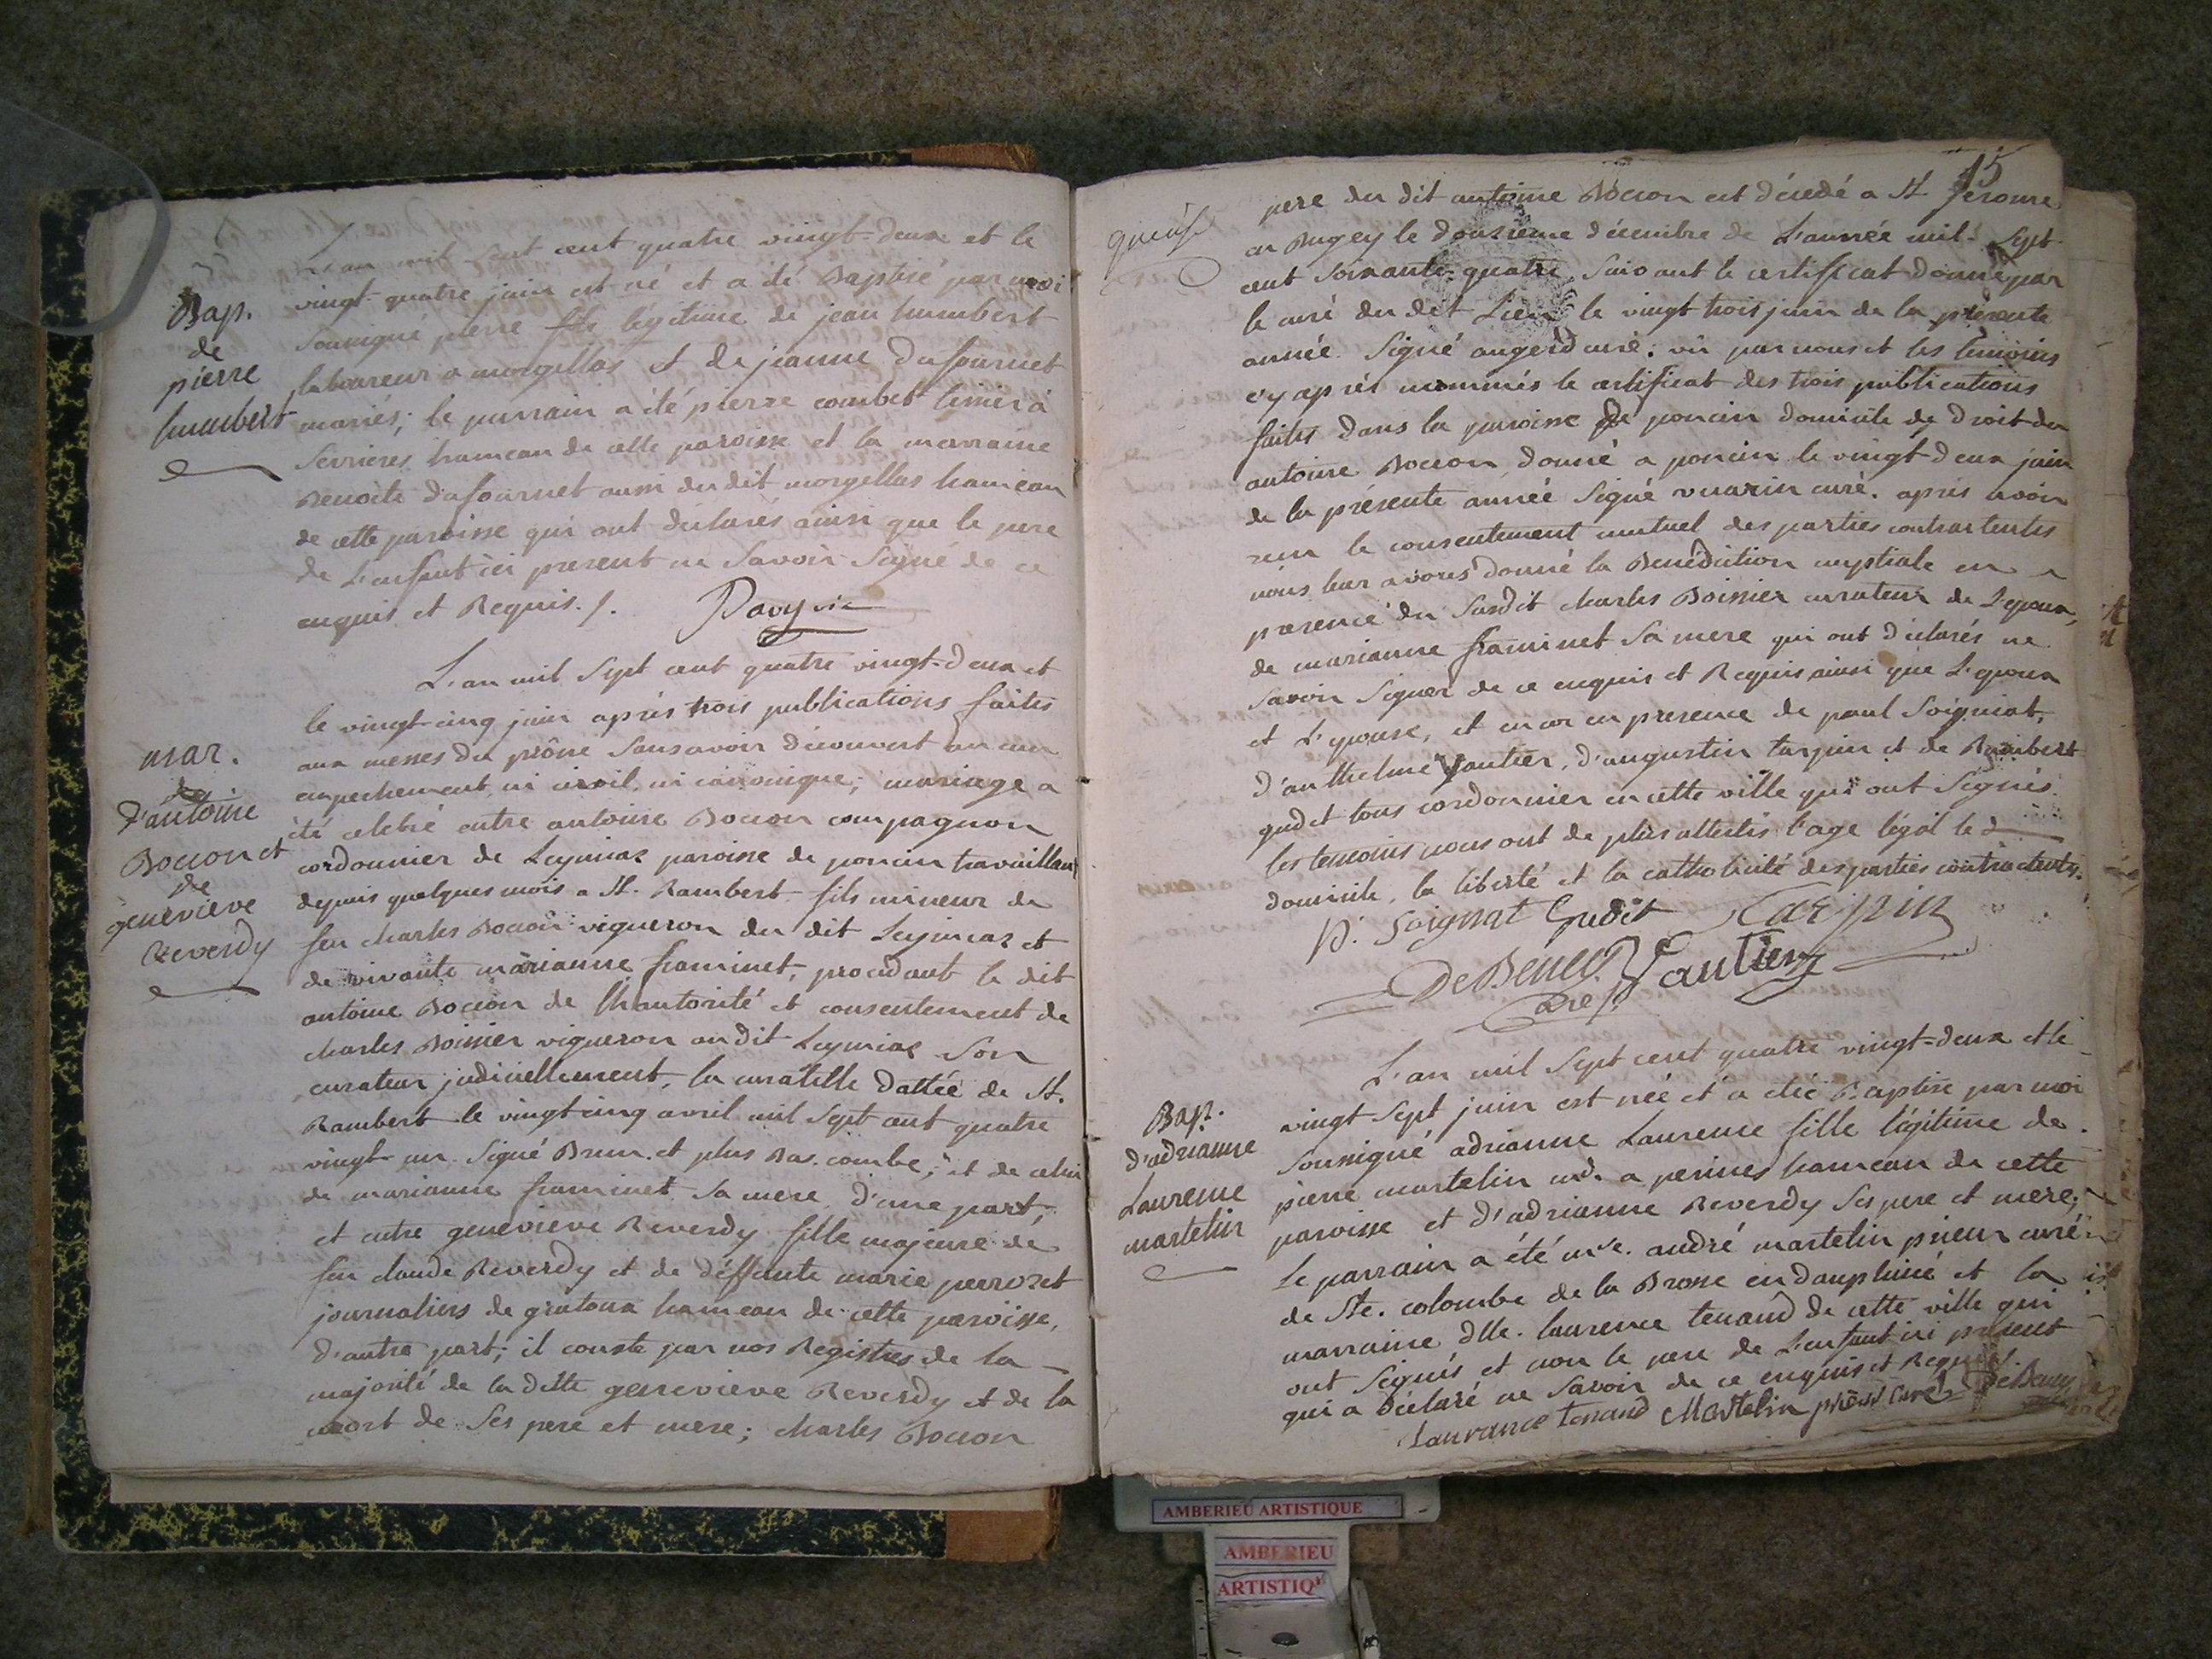 Bap.
de
pierre
humbert
L'an mil sept cent quatre vingt-deux et le
vingt-quatre juin est né et a été Baptisé par moi
soussigné pierre fils légitime de jean humbert
laboureur a morgellas et de jeanne dufournet
mariés; le parrain a été pierre combet tissier à
Serrieres hameau de cette paroisse et la marraine
Benoite dufournet aussi du dit morgellas hameau
de cette paroisse qui ont déclarés ainsi que le pere
de L'enfant ici present ne Savoir Signé de ce
enquis et Requis./.
mar.
de
d'antoine
Bocion et
de
genevieve
Reverdy
L'an mil Sept cent quatre vingt-deux et
le vingt-cinq juin après trois publications faites
aux messes du prône sans avoir découvert aucun
empechement ni civil, ni canonique; mariage a
été celebré entre antoine Bocion compagnon
cordonnier de Leymiaz paroisse de poncin travaillant
depuis quelques mois a St. Rambert fils mineur de
feu charles Bocion vigneron du dit Leymiaz et
de vivante marianne framinet, procédant le dit
antoine Bocion de lhautorité et consentement de
charles Boissier vigneron au dit Leymiaz Son
curateur judiciellement, la curatelle dattée de St.
Rambert le vingt cinq avril mil Sept cent quatre
vingt un Signé Brun. et plus Bas. combe; et de celui
de marianne framinet sa mere d'une part;
et entre genevieve Reverdy fille majeure de
feu claude Reverdy et de déffunte marie perrozet
journaliers de gratoux hameau de cette paroisse,
d'autre part; il conste par nos Registres de la
majorité de la ditte genevieve Reverdy et de la
mort de Ses pere et mere; charles Bocion
15
pere du dit antoine Bocion est décedé a St Jerome
en Bugey le douzieme décembre de L'année mil Sept
cent soixante-quatre, suivant le certificat donné par
le curé du dit Lieu le vingt trois juin de la présente
année Signé auger curé: vu par nous et les témoins
cy après nommés le certificat des trois publications
faites dans la paroisse de poncin domicile de droit du
antoine Bocion, donné a poncin le vingt-deux juin
de la présente année Signé vuarin curé. après avoir
reçu le consentement mutuel des parties contractentes
nous leur avons donné la Bénédiction nuptiale en
presence du Susdit charles Boissier curateur de L'epoux,
de marianne framinet Sa mere qui ont déclarés ne
Savoir Signer de ce enquis et Requis ainsi que L'epoux
et L'epouse, et encor en presence de paul Soigniat,
d'anthelme Vautier, d'augustin tarpin et de Rambert
gudet tous cordonnier en cette ville qui ont Signés.
les temoins nous ont de plus attestés l'age légal le
domicile, la liberté et la catholicité des parties contractentes.
P. Soignat Gudit Tarpin
DeBeney Vautier
Bap.
d'adrianne
Laurence
martelin
L'an mil Sept cent quatre vingt-deux et le
vingt Sept juin est née et a été Baptisé par moi
Soussigné adrianne Laurence fille légitime de
pierre martelin md. a perines hameau de cette
paroisse et d'adrianne Reverdy Ses pere et mere;
Le parrain a été mre. andré martelin prieur curé
de Ste. colombe de la Brosse en dauphiné et la
marraine dlle. laurence tenand de cette ville qui
ont Signés et non le pere de L'enfant ici present
qui a déclaré ne Savoir de ce enquis et Requis.
Laurance tenand Martelin prieur curé DeBeney
AMBERIEU ARTISTIQUE
AMBERIEU
ARTISTIQ